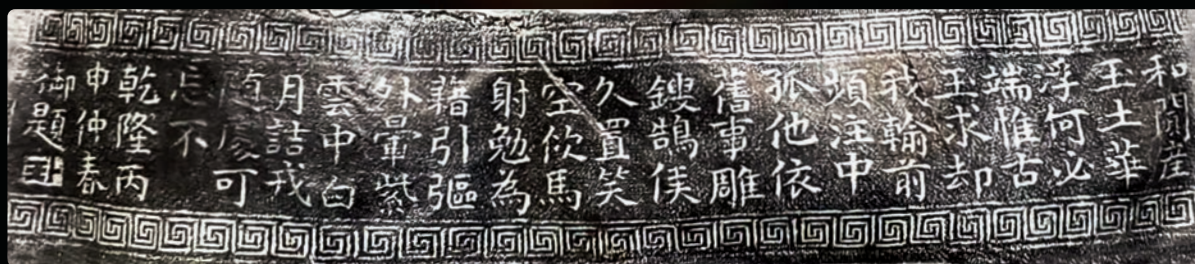 和闐產
玉土華
浮何必
端惟古
玉求却
我翰前
頻注中
孤他依
舊事雕
鎪鵠侯
久置笑
空馬
射勉為
藉引彄
外暈紫
雲中白
月詰戎
隨處可
忘不
乾隆丙
申仲春
御題